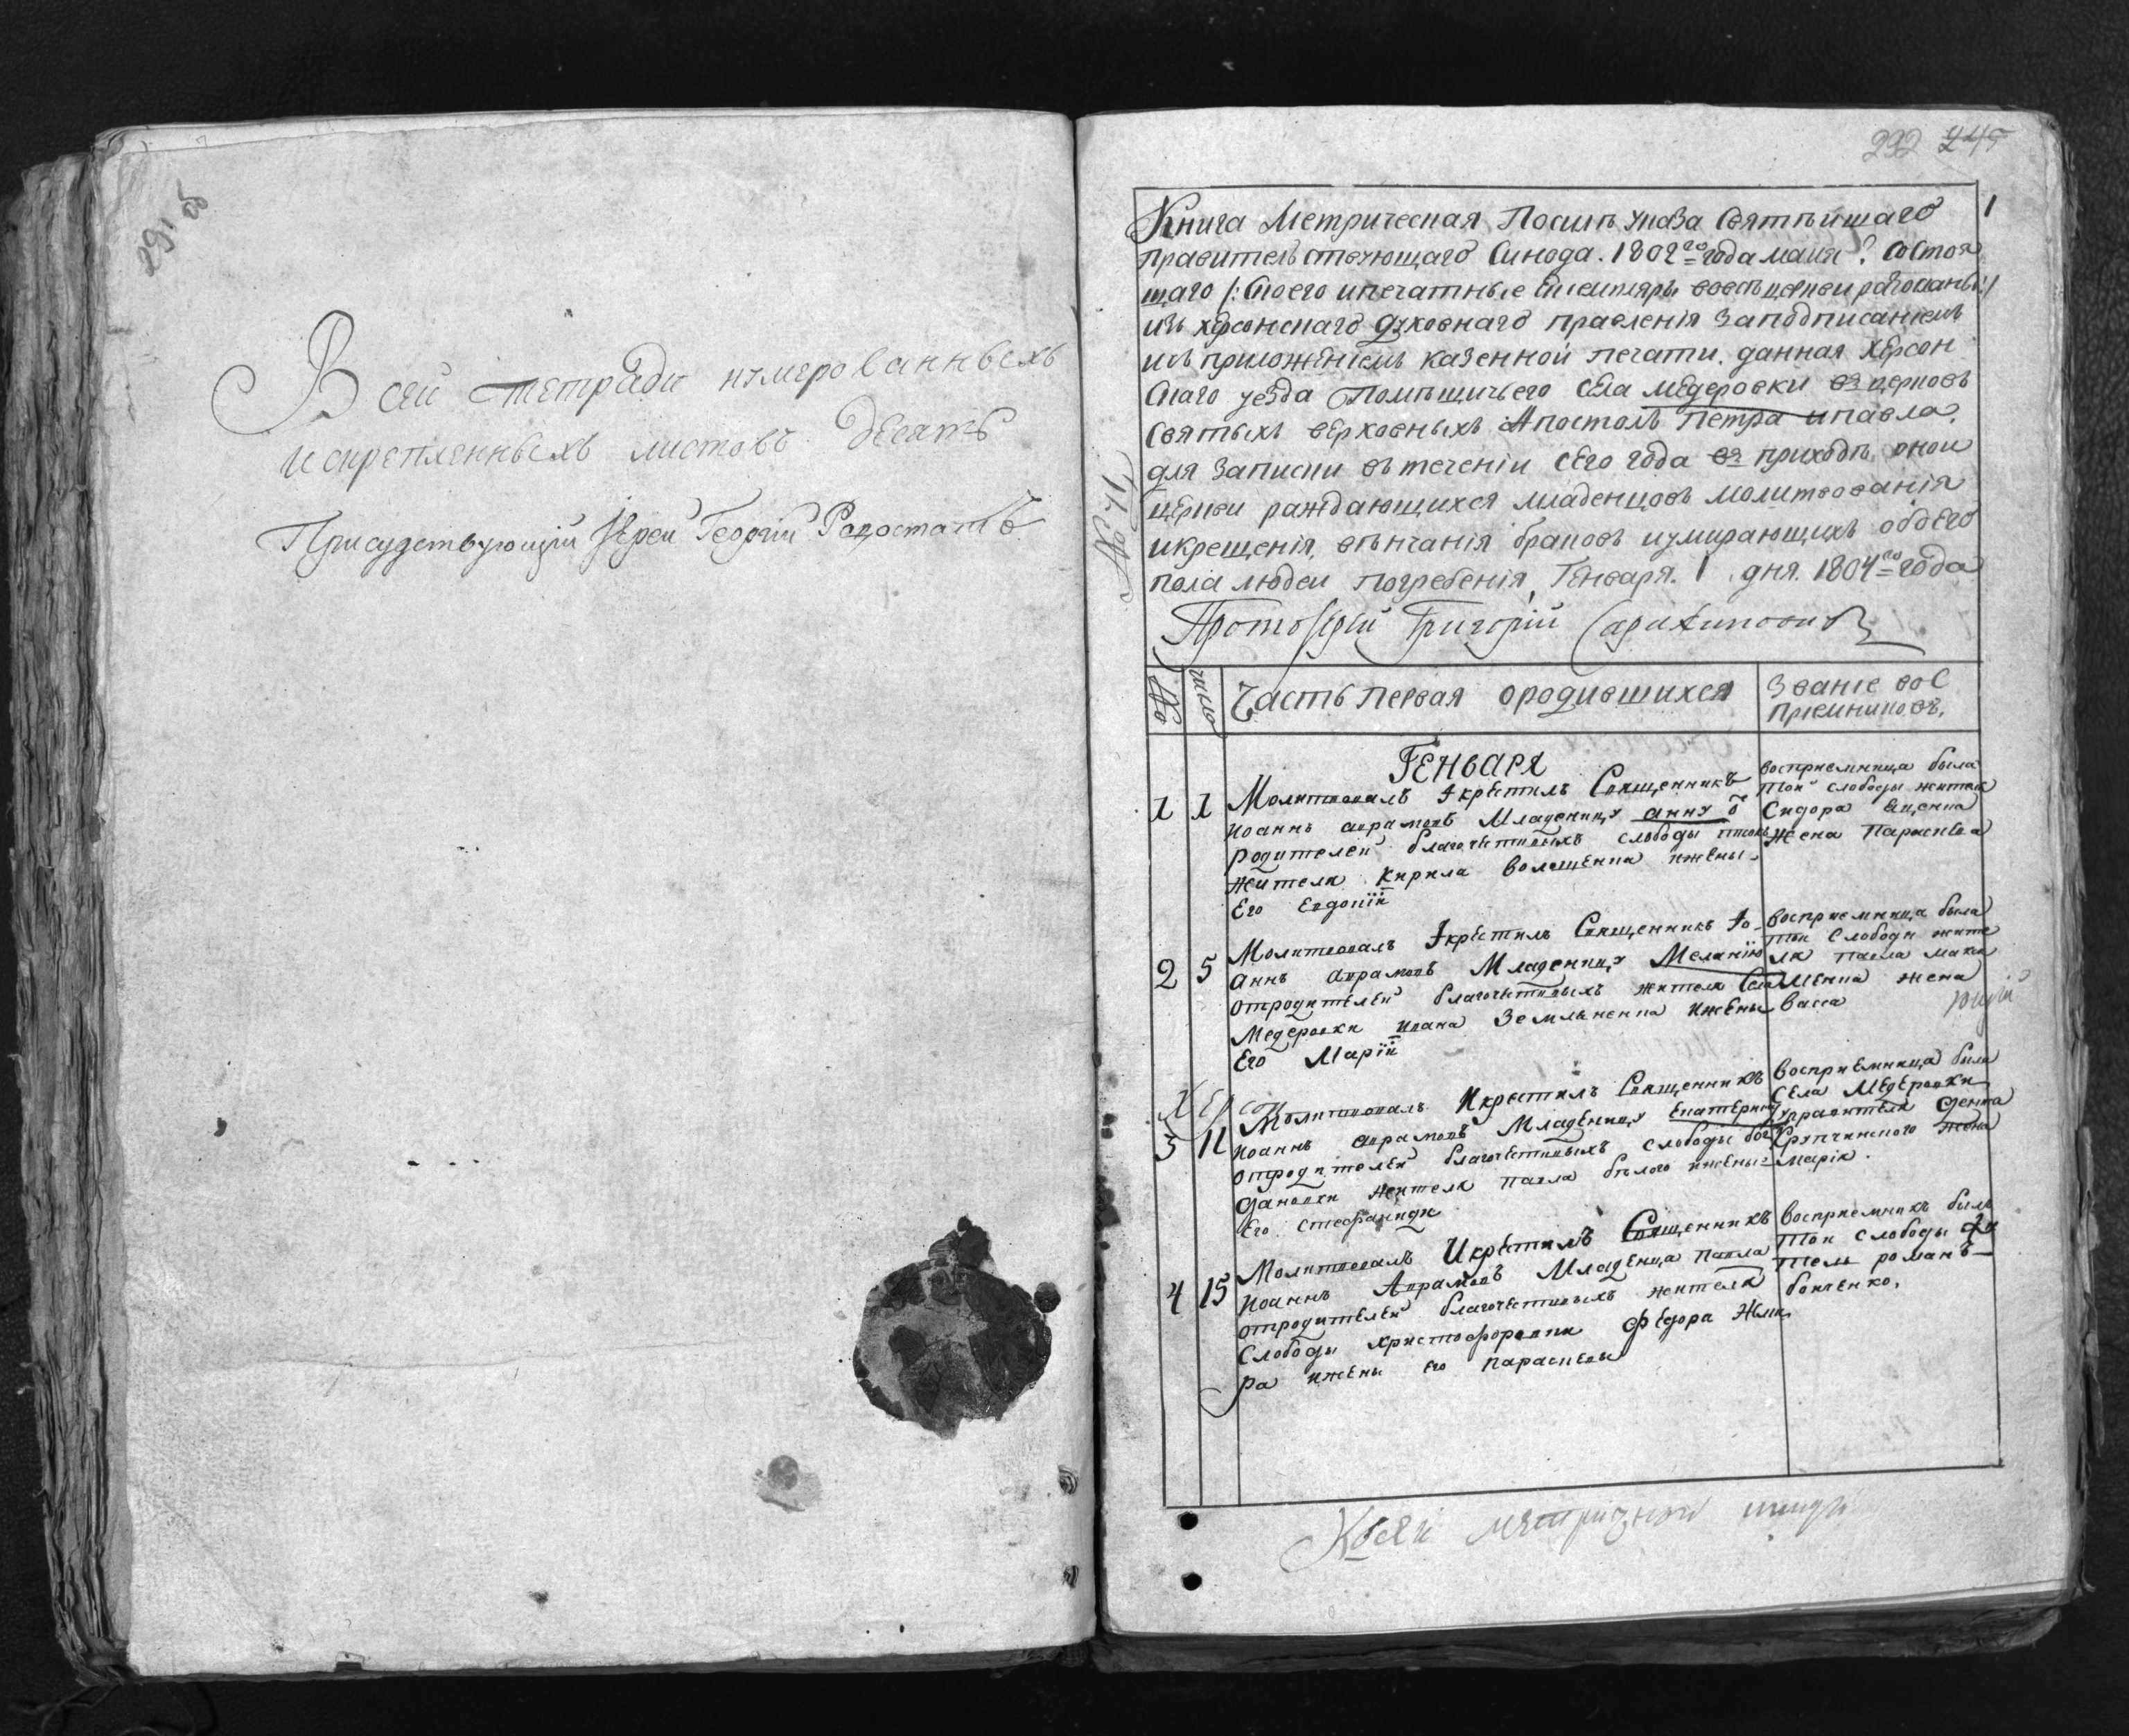 291 об
Всей тетради нумерованныхъ
и скрепленныхъ листовъ десять
Присудствующий Иерей Георгий
292 245
1
Книга Метрическая Посилѣ указа Святѣйшаго
правительствующаго Синода. 1802го года маия состоя
щаго
изъ херсонскаго духовнаго правленія заподписаниемъ
исъ приложениемъ казенной печати. данная Херсон
скаго уезда Помѣщичьего села медеровки въ церковь
Святыхъ верховныхъ Апостолъ Петра ипавла.
для записки въ теченіи сего года въ приходѣ оной
церкви раждающихся младенцовъ молитвованія
икрещенія, вѣнчанія браковъ иумирающихъ обоего
пола людей погребенія, Генваря. 1 дня. 1804го года
№ 41
Протоіерей Григорій
№
Часть первая ородившихся
Званіе вос
приемниковъ.
Генваря
1 1 Молитвовалъ Iкрестилъ Священникъ
Иоаннъ аврамовъ Младеницу анну ѿ
родителей благочестивыхъ слободы
жителя Кирила волощенка ижены
Его Евдокіи
восприемница была
той слободы жителя
Сидора
жена Параскева
2 5 Молитвовалъ Iкрестилъ Священникъ Iо-
аннъ аврамовъ Младеницу Меланію
отродителей благочестивыхъ жителя села
Медеровки ивана Земляненка ижены
Его Маріи
восприемница была
той слободы жите
ля павла мака
менка жена
васса
3 11 Молитвовалъ Икрестилъ Священникъ
Иоаннъ аврамовъ Младеницу Екатерину
отродителей благочестивыхъ слободы бог
дановки жителя павла бѣлого ижены
Его Стефаниды
восприемница была
села Медеровки
жена
марія.
4 15 Молитвовалъ Икрестилъ Священникъ
Иоаннъ Аврамовъ Младенца павла
отродителей благочестивыхъ жителя
Слободы христофоровки Федора
ра ижены его параскевы
восприемникъ былъ
той слободы жи
тель романъ
бойченко.